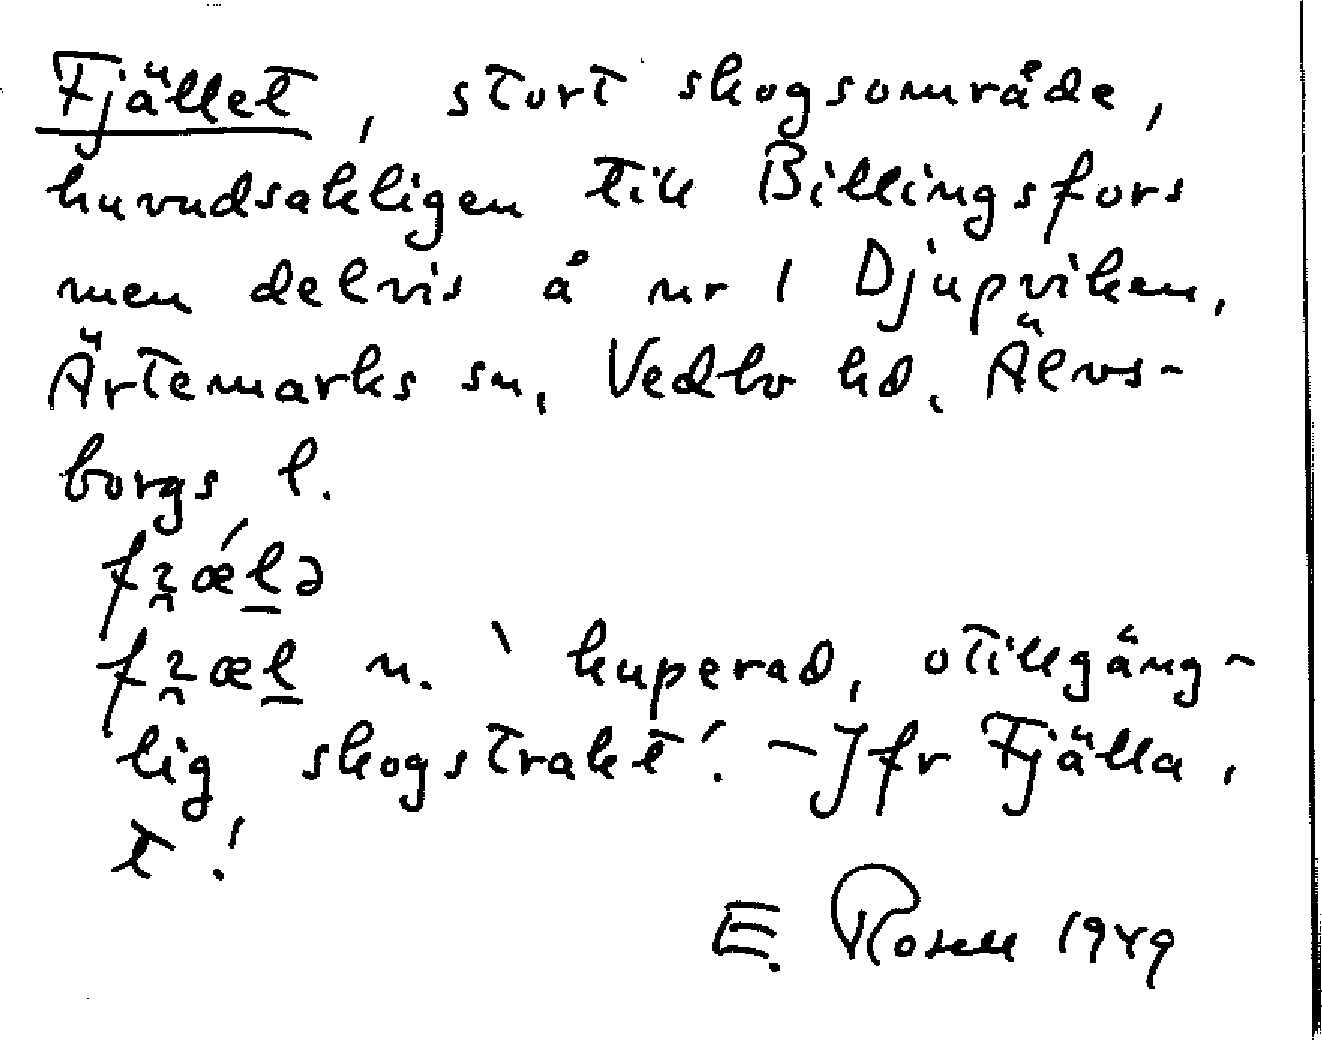 Fjället, stort skogsområde,
huvudsakligen till Billingsfors
men delvis å nr 1 Djupviken,
Ärtemarks sn, Vedbo hd, Älvs-
borgs l.
n. `kuperad, otillgäng-
lig skogstrakt'. - Jfr Fjälla,
t!
E. Rosell 1949